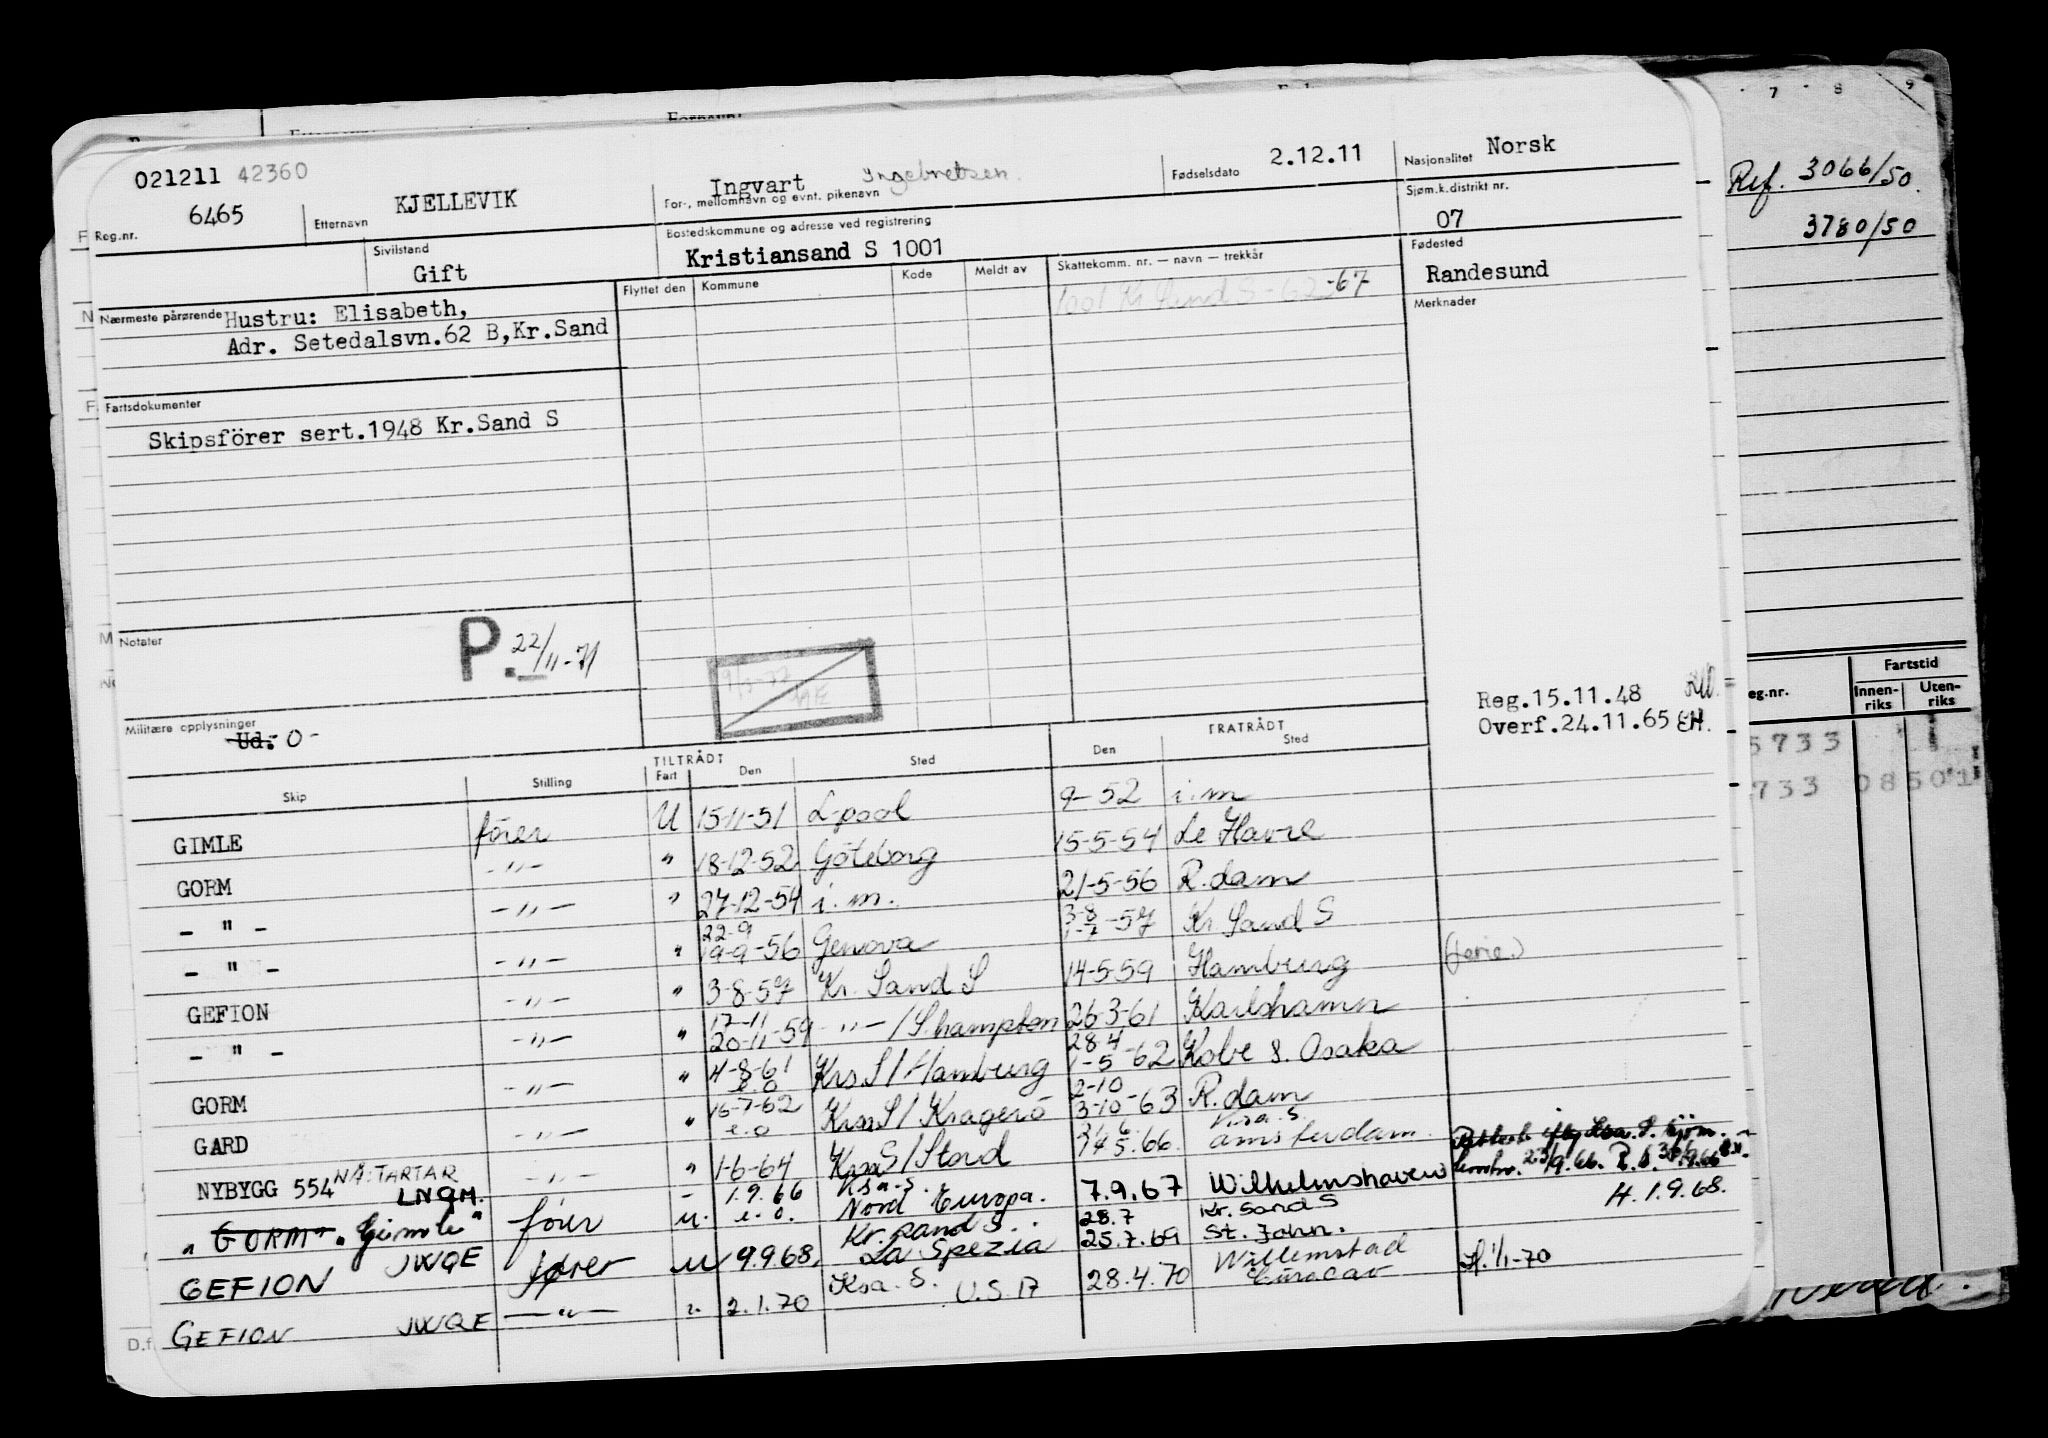 021211 42360
6465
Reg.nr.
Etternavn KJELLEVIK
Ingvart Ingebretsen.
For-, mellomnavn og evnt. pikenavn
Fødselsdato 2.12.11
Nasjonalitet Norsk
Sivilstand
Gift
Bostedskommune og adresse ved registrering
Kristiansand S 1001
Sjøm.k.distrikt nr.
07
Nærmeste pårørende Hustru: Elisabeth,
Adr. Setedalsvn.62 B,Kr.Sand
Flyttet den Kommune Kode Meldt av
Skattekomm. nr. — navn — trekkår
1001 Kr Sand S -62-67
Fødested
Randesund
Merknader
Fartsdokumenter
Skipsförer sert.1948 Kr.Sand S
Notater
P. 22/11-71
Militære opplysninger
Ud: 0-
Reg.15.11.48
Overf.24.11.65 EH.
TILTRÅDT FRATRÅDT
Skip Stilling Fart Den Sted Den Sted
GIMLE förer U 15-11-51 L-pool 9-52 i.m
GORM -"- " 18-12-52 Göteborg 15-5-54 Le Havre
- " - -"- " 27-12-54 i.m. 21-5-56 R.dam
- " - -"- " 22-9 19-9-56 Genova 3-8 1-7-57 Kr Sand S
GEFION -"- " 3-8-57 Kr. Sand S 14-5-59 Hamburg (ferie)
- " - -"- " 17-11 20-11-59 -"-/S.hampton 26-3-61 Karlshamn
GORM -"- " 4-8-61 e.o KrsS/Hamburg 28.4 1-5-62 Kobe & Osaka
GARD " 16-7-62 e.o KrsS/Kragerö 2-10 3-10-63 R.dam
NYBYGG 554 NÅ: TARTAR LNQM. -"- " 1-6-64 KrsS/Stord 5.66. Krsa.S. amsterdam.
"GORM" "Gimle" fører u. 1.9.66 e.o. Ksa.S. Nord Europa. 7.9.67 Wilhelmshaven
GEFION JWQE fører u 9.9.68, Kr.sand S. La Spezia 28.7 25.7.69 Kr. Sand S St. John. H. 1.9.68.
GEFION JWQE -"- ". 2.1.70 Ksa. S. U.S.A 28.4.70 Willemstad Curacao H. 1/1-70
Ref. 3066/50.
3780/50
7 8 9
eg.nr.
Fartstid
Innen-riks Uten-riks
5733
733 08 50 1